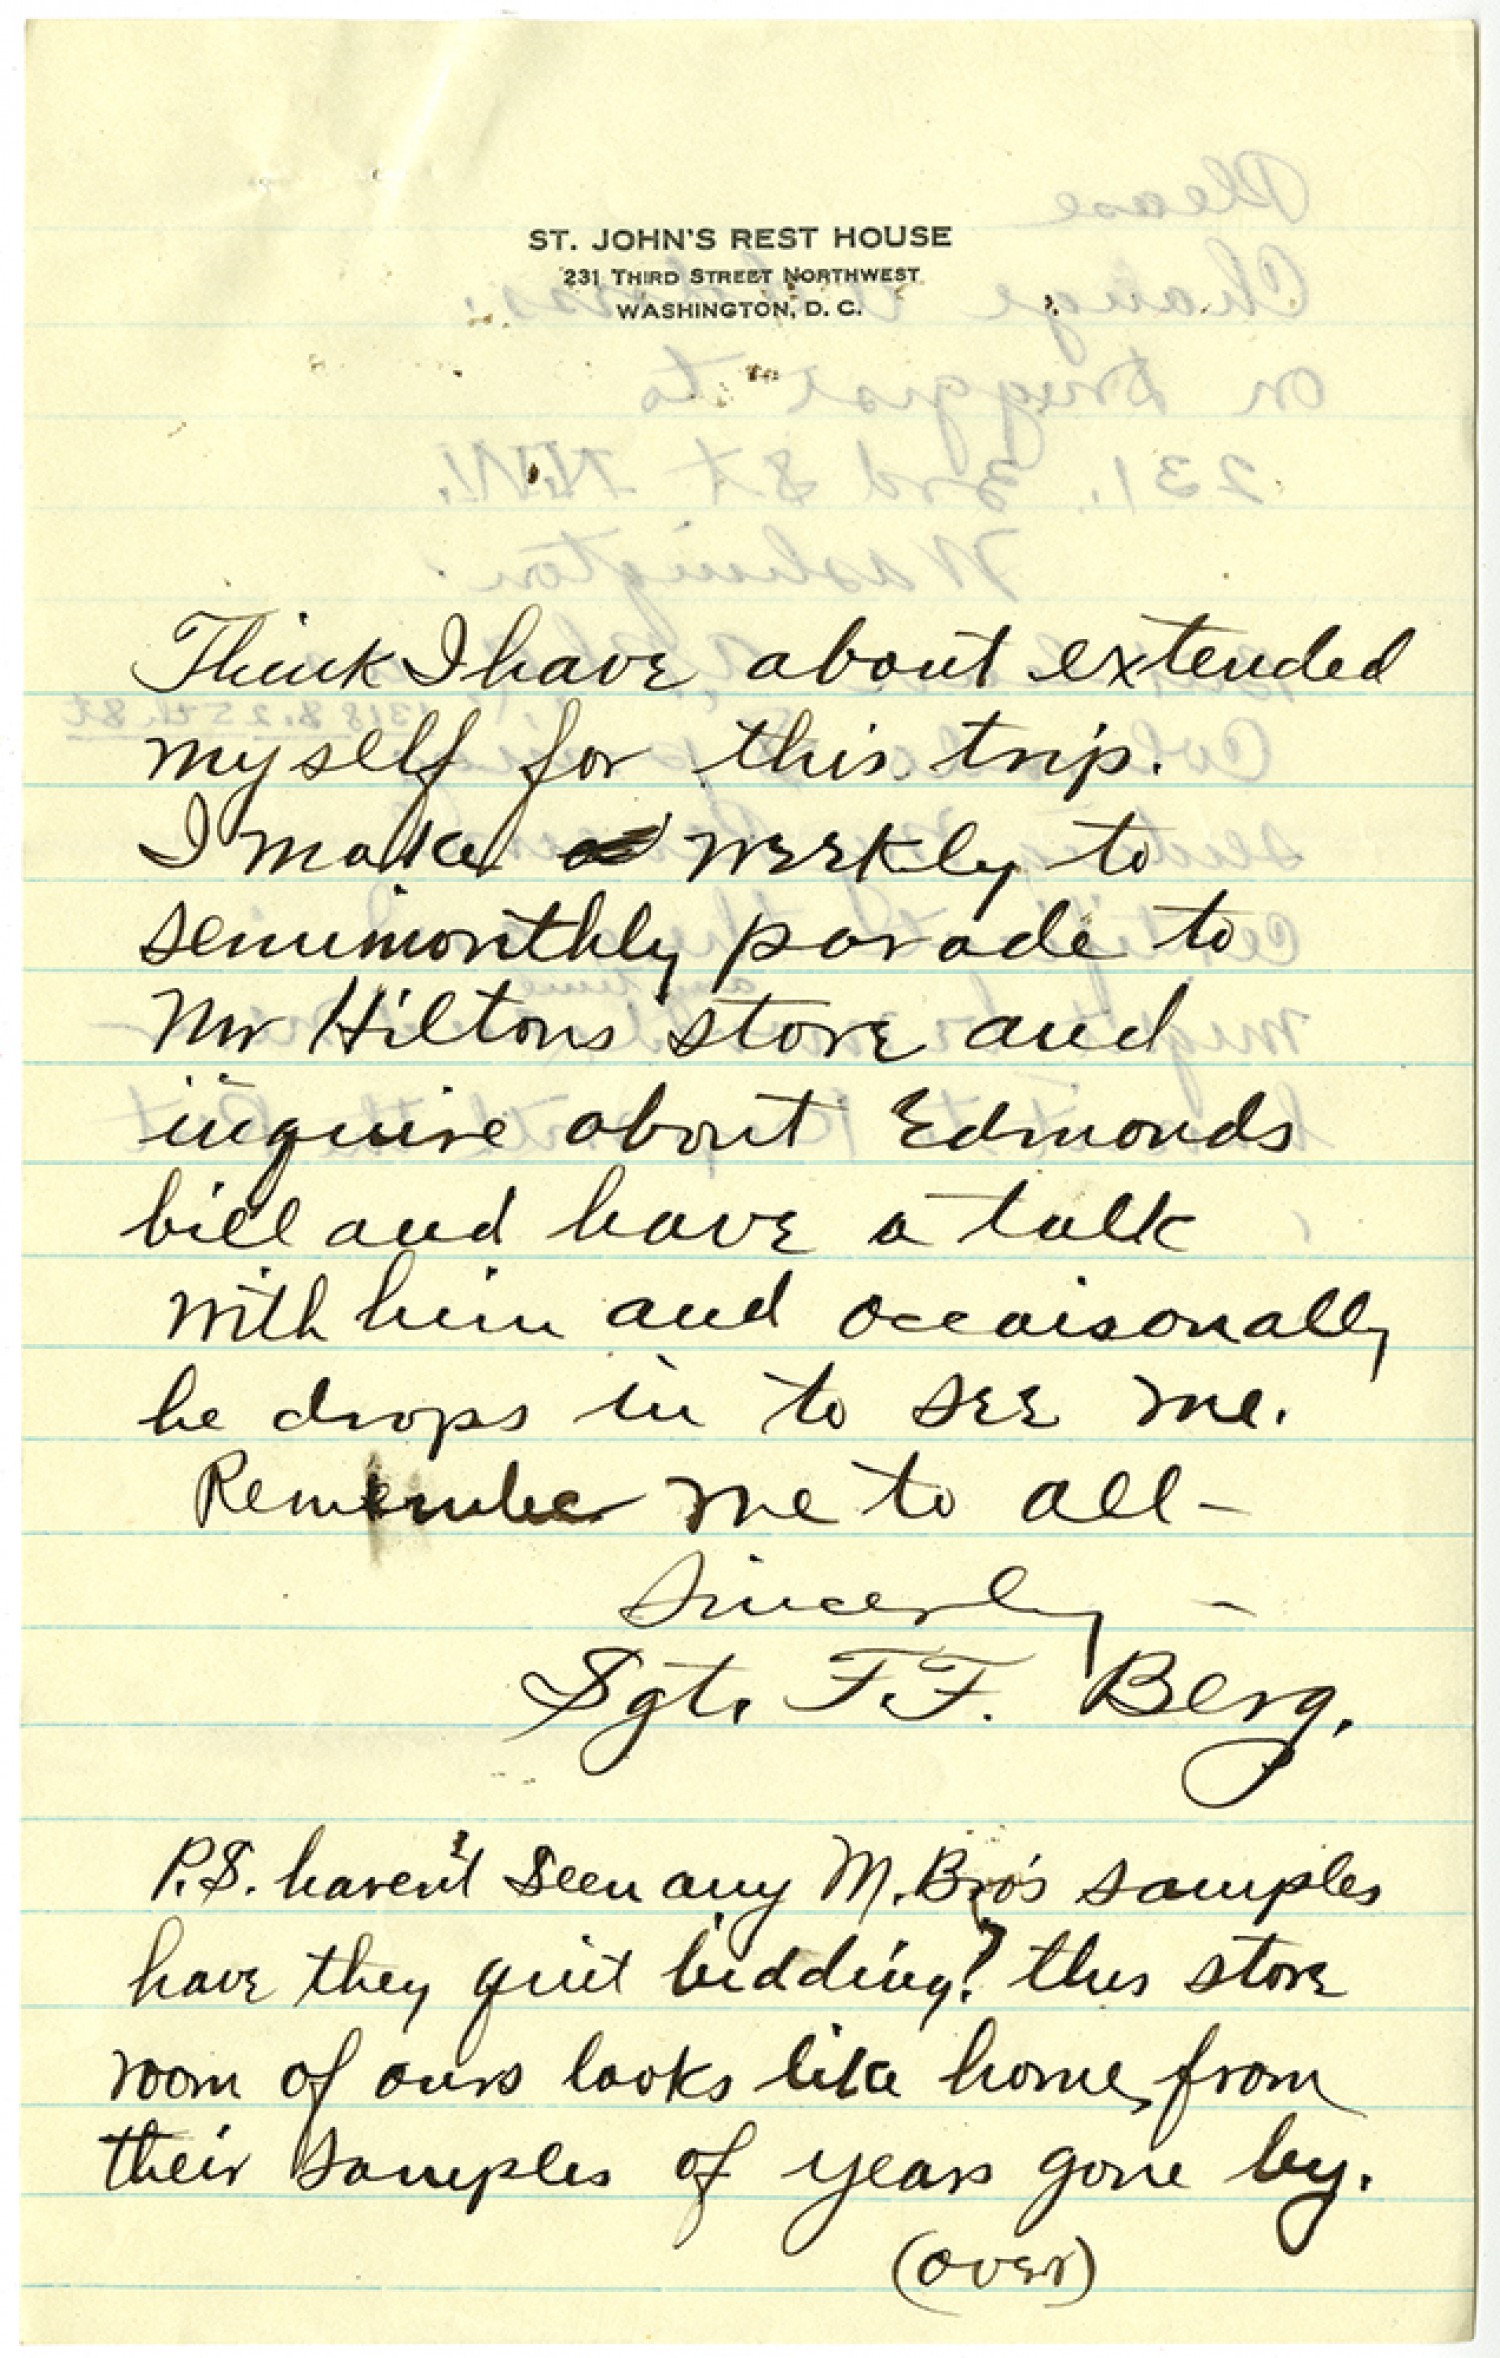 ST. JOHN'S REST HOUSE
231 THIRD STREET NORTHWEST
WASHINGTON, D. C.
Think I have about extended
myself for this trip.
I make weekly to
semimonthly parade to
Mr Hiltons store and
inquire about Edmonds
bill and have a talk
with him and occaisonally
he drops in to see me.
Remember me to all –
Sincerly –
Sgt. F.F. Berg.
P.S. haven't seen any M. Bro's samples
have they quit bidding? this store
room of ours looks like home, from
their samples of years gone by.
(over)
Please
Change address:
on Druggist to
231. 3rd St N.W.
Washington.
1318 S. 25th St